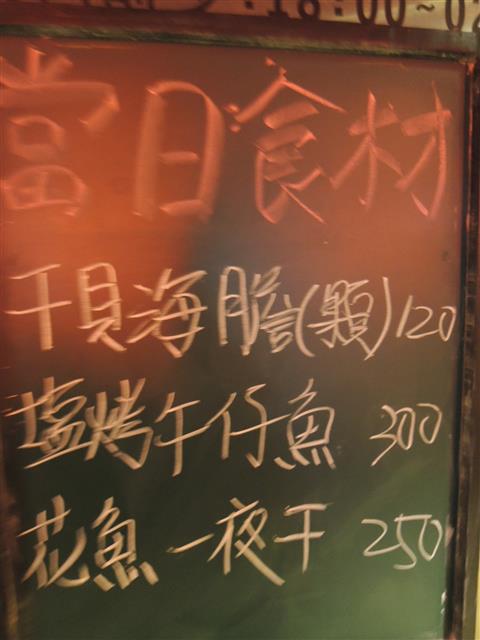 當日食材
干貝海膽(顆)120
塩烤午仔魚 300
花魚一夜干 250